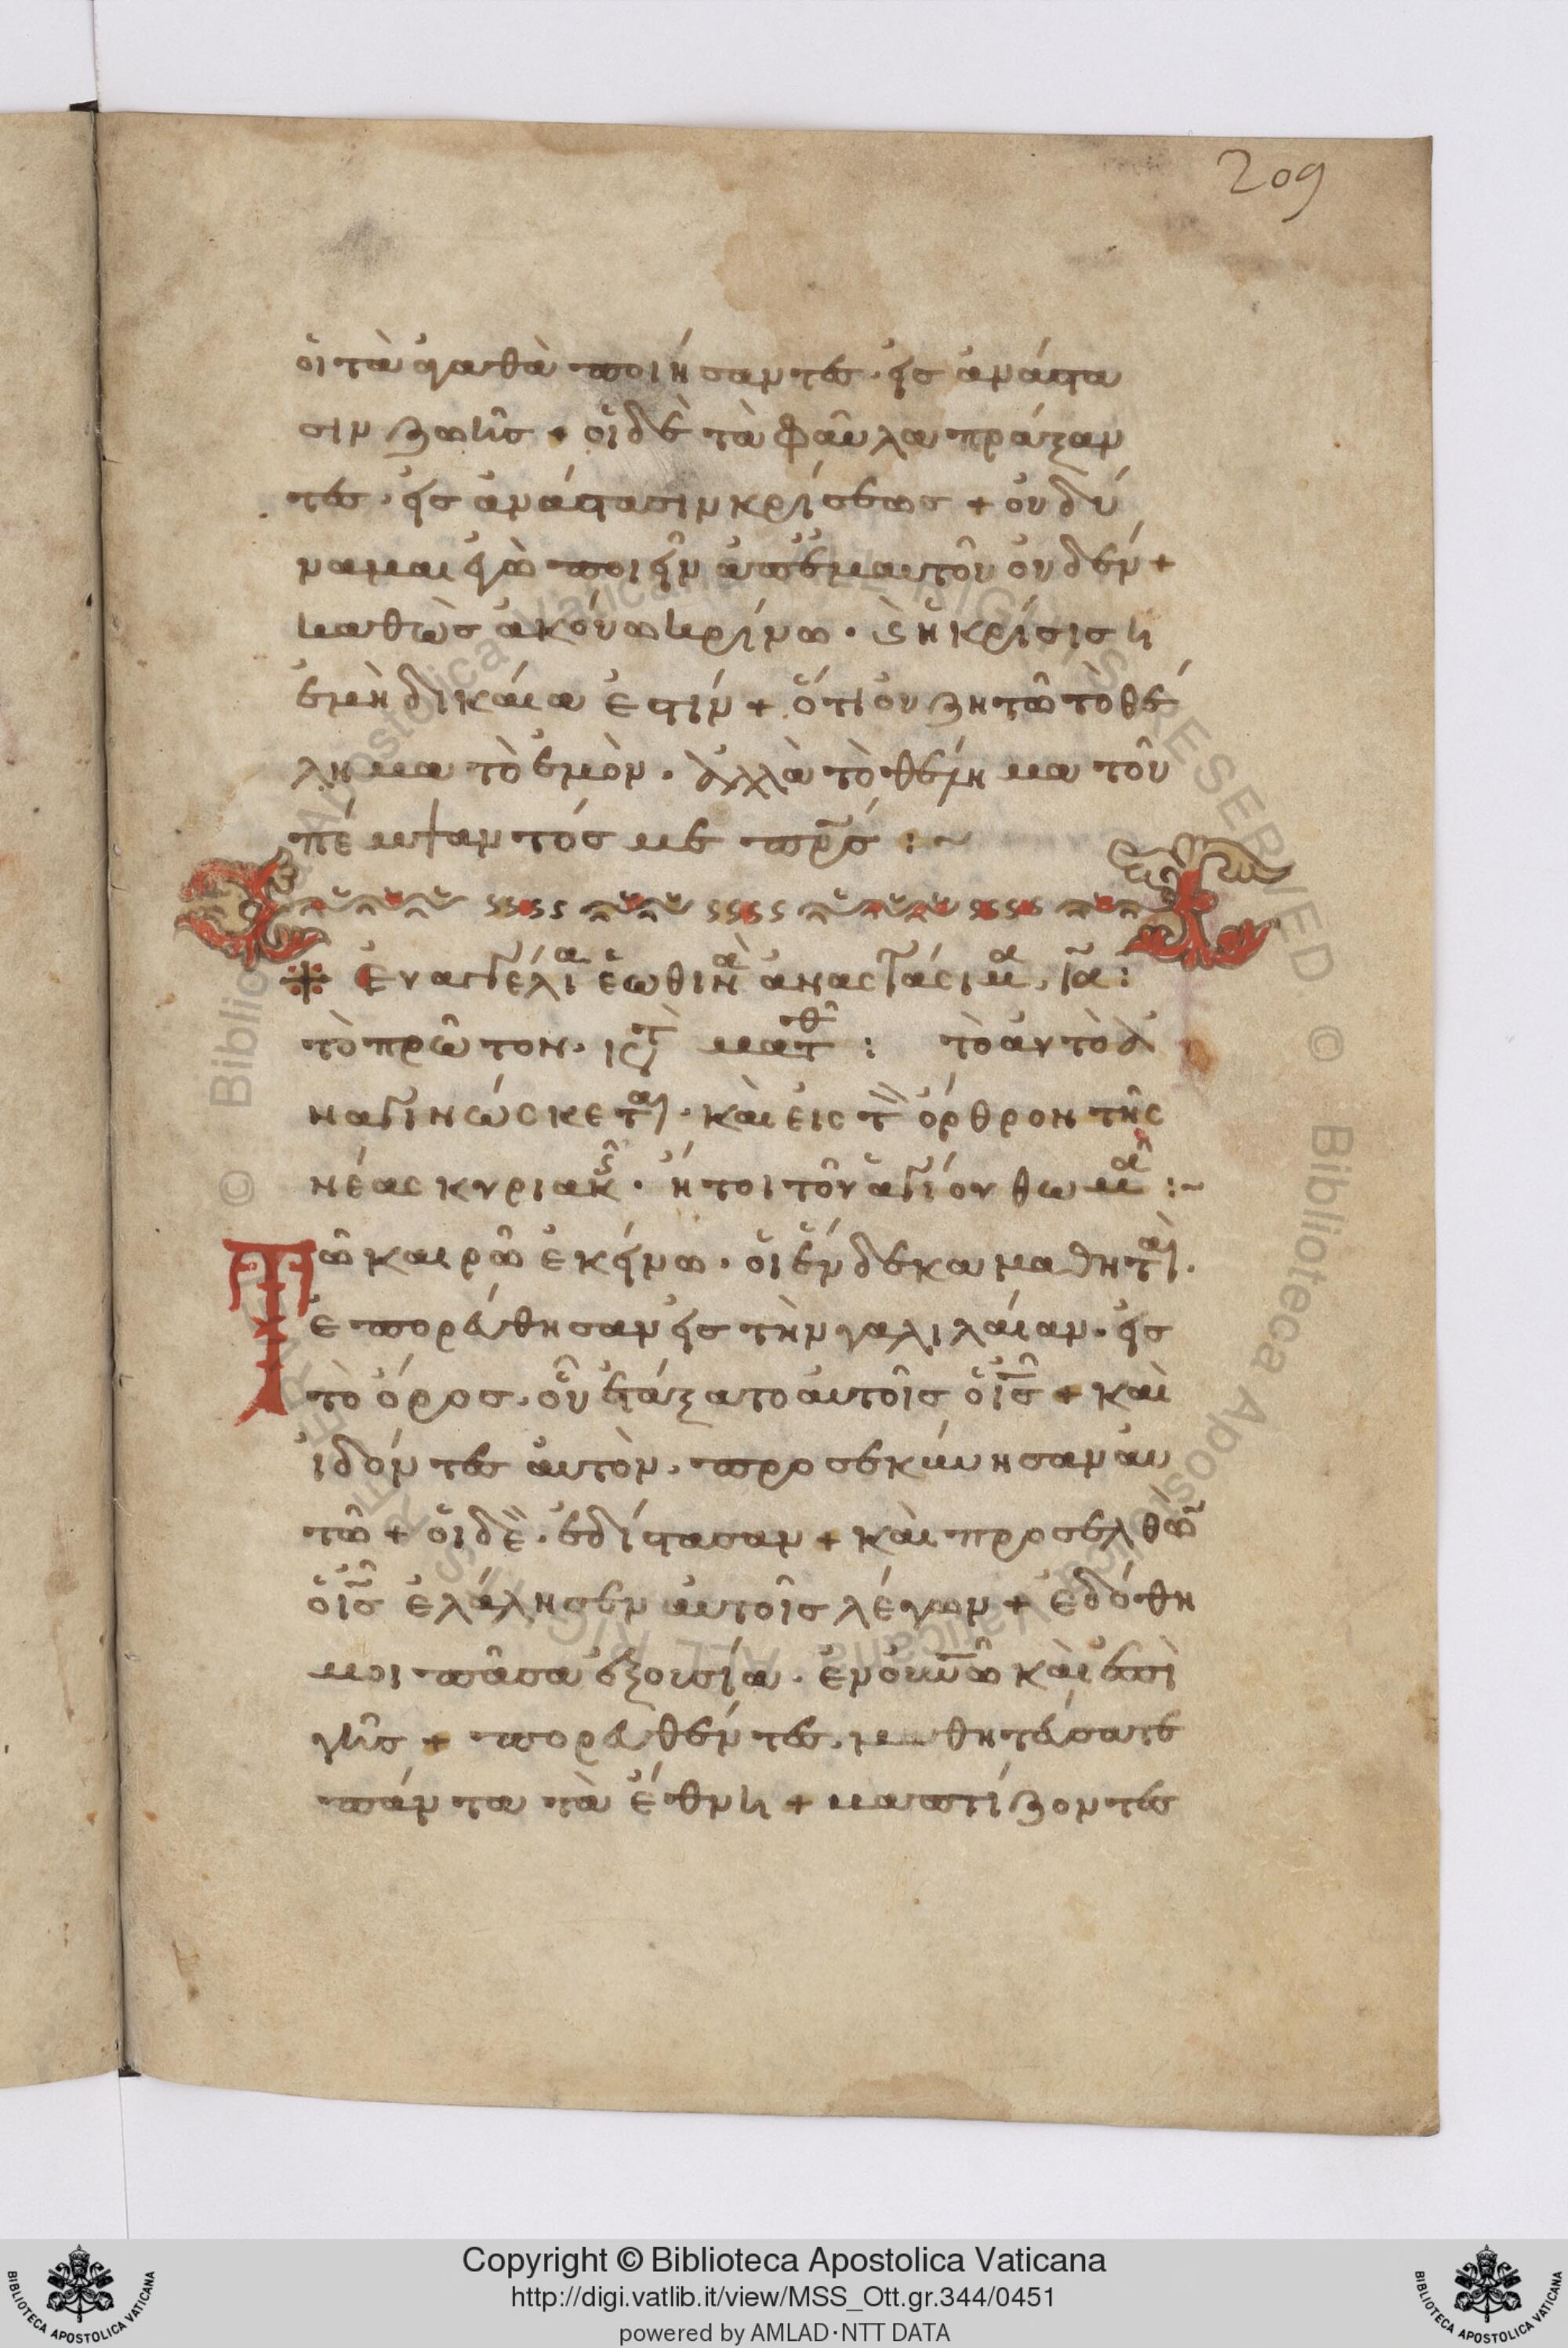 209
οἱ τὰ ἀγαθὰ ποιήσαντες· εἰς ἀνάστα
σιν ζωῆς + οἱ δὲ τὰ φαῦλα πράξαν
τες· εἰς ἀνάστασιν κρίσεως + οὐ δύ
ναμαι ἐγὼ ποιεῖν ἀπ' ἐμαυτοῦ οὐδέν +
καθὼς ἀκούω κρίνω· κ(αὶ) ἡ κρίσις ἡ
ἐμὴ δικαία ἐστίν + ὅτι οὐ ζητῶ τὸ θέ
λημα τὸ ἐμὸν· ἀλλὰ τὸ θέλημα τοῦ
πέμψαντός με πρς :~
Εὐαγγέλια ἑωθινὰ ἀναστάσιμα, ια:
τὸ πρῶτον· κτ ματθ : τὸ αὐτὸ δὲ ἀ
ναγινώσκεται· καὶ εἰς τὸν ὄρθρον τῆς
νέας κυριακῆς· ἤτοι τοῦ ἁγίου θωμᾶ :~
Τῶ καιρῶ ἐκείνω· οἱ ἕνδεκα μαθηταὶ·
ἐπορεύθησαν εἰς τὴν γαλιλαίαν· εἰς
τὸ ὄρος· οὗ ἐτάξατο αὐτοῖς ὁ ις + καὶ
ἰδόντες αὐτὸν· προσεκύνησαν αὐ
τῶ + οἱ δὲ· ἐδίστασαν + καὶ προσελθὼν
ὁ ις ἐλάλησεν αὐτοῖς λέγων + ἐδόθη
μοι πᾶσα ἐξουσία· ἐν οὐνῶ καὶ ἐπὶ
γῆς + πορευθέντες· μαθητεύσατε
πάντα τὰ ἔθνη + βαπτίζοντες
Copyright © Biblioteca Apostolica Vaticana
http://digi.vatlib.it/view/MSS_Ott.gr.344/0451
powered by AMLAD·NTT DATA